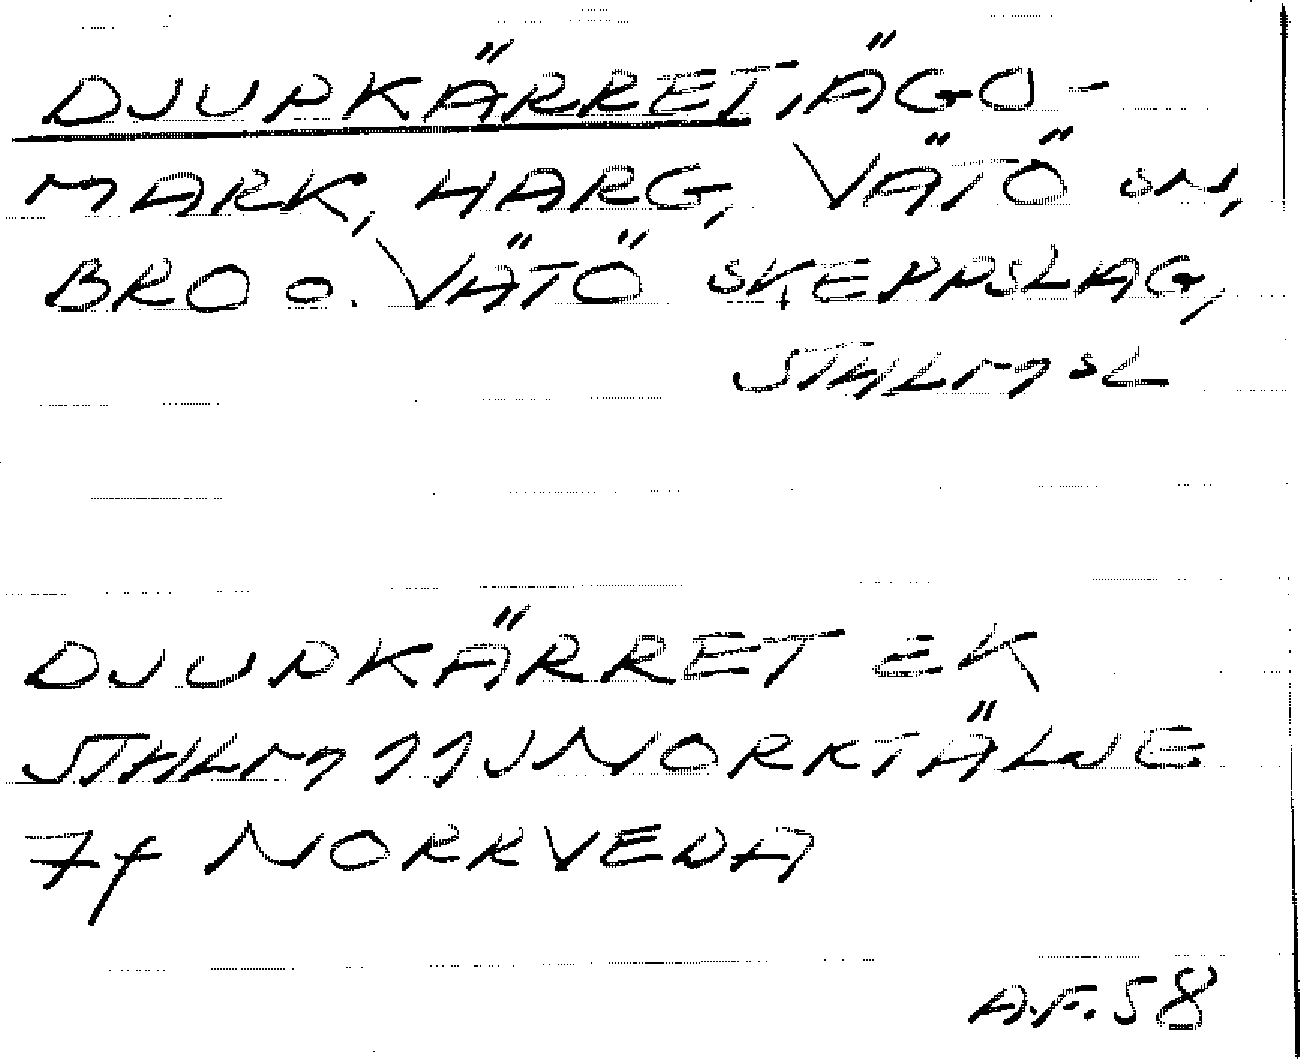 DJUPKÄRRET, ÄGO-
MARK, HARG, VÄTÖ SN,
BRO O. VÄTÖ SKEPPSLAG,
STHLMSL
DJUPKÄRRET EK
STHLM 11J NORRTÄLJE
7f NORRVEDA
A.F. 58